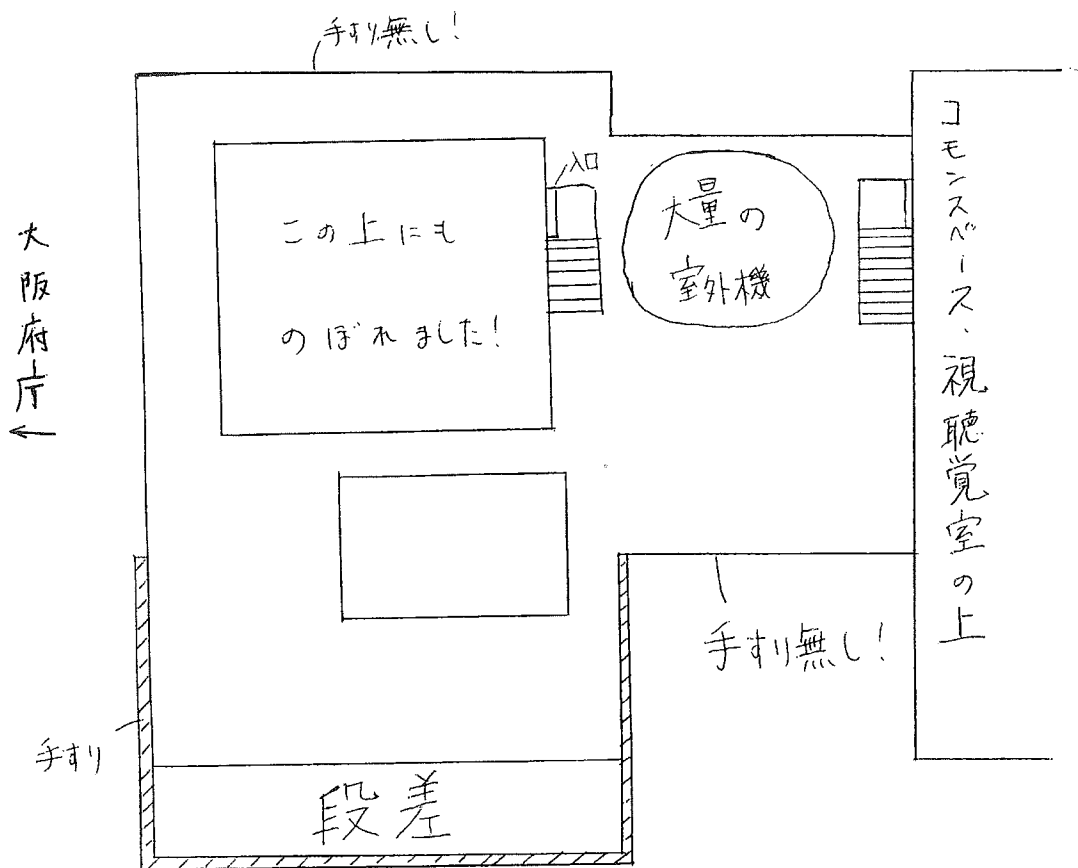 手すり無し!
入口
この上にも
のぼれました!
大量の
室外機
コモンスペース、視聴覚室の上
大阪府庁
←
手すり無し!
手すり
段差